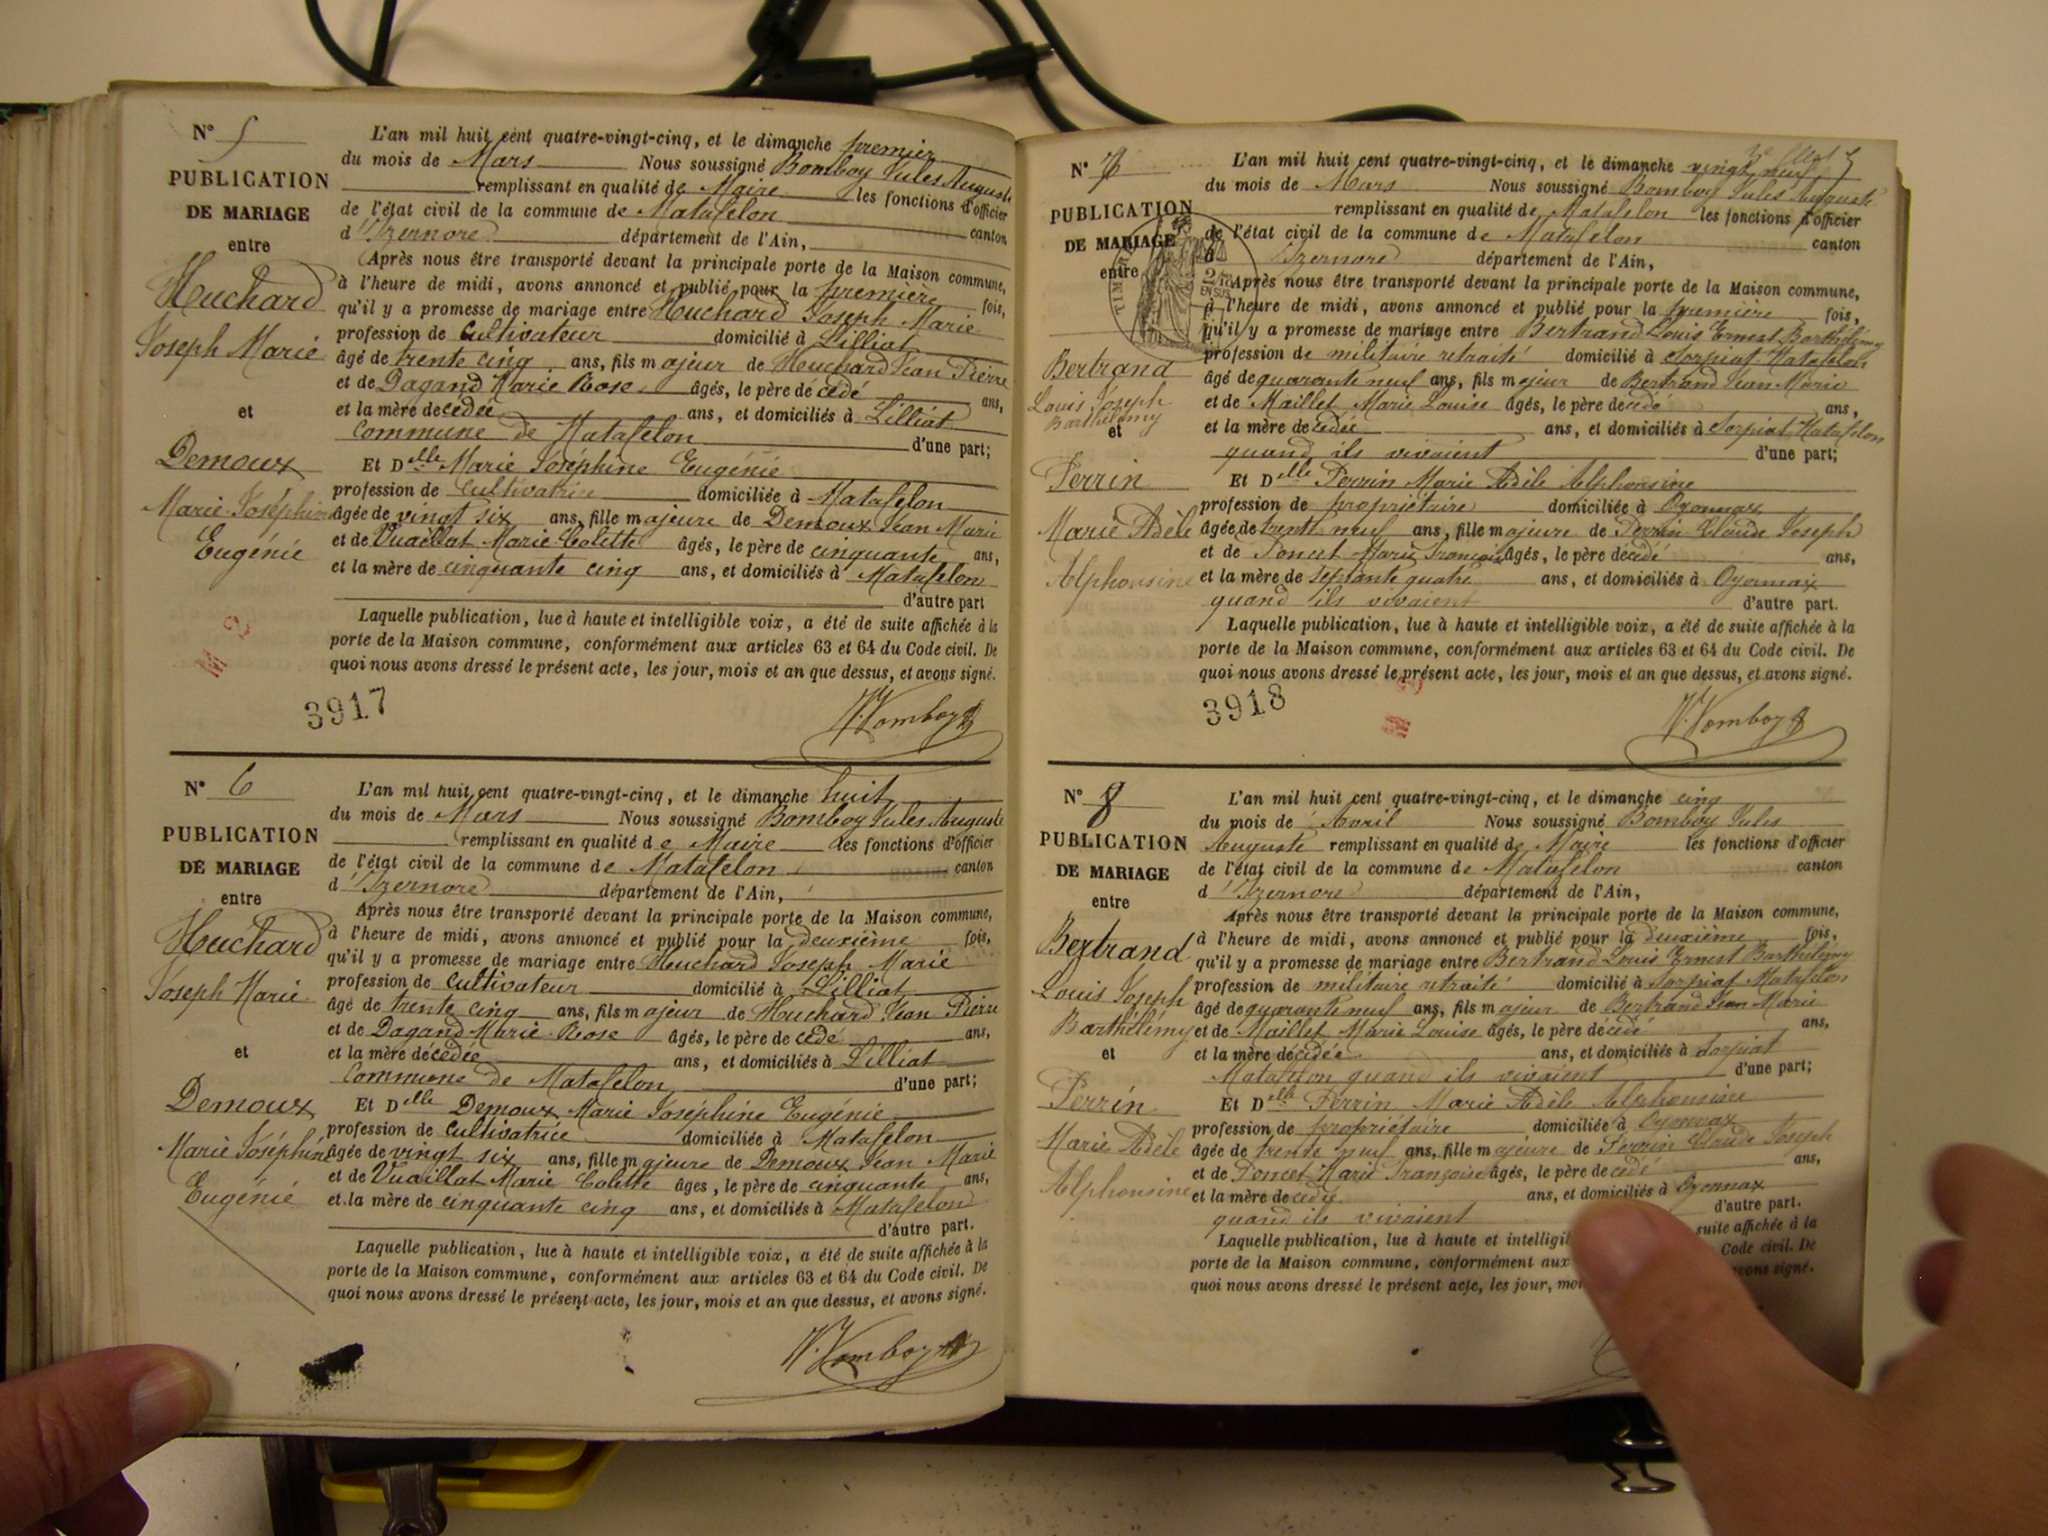 N° 5
PUBLICATION
DE MARIAGE
entre
Huchard
Joseph Marie
et
Demoux
Marie Joséphine
Eugénie
L'an mil huit cent quatre-vingt-cinq, et le dimanche premier
du mois de Mars Nous soussigné Bomboy Jules Auguste
remplissant en qualité de Maire les fonctions d'officier
de l'état civil de la commune de Matafelon canton
d'Izernore département de l'Ain,
Après nous être transporté devant la principale porte de la Maison commune,
à l'heure de midi, avons annoncé et publié pour la première fois,
qu'il y a promesse de mariage entre Huchard Joseph Marie
profession de Cultivateur domicilié à Lilliat
âgé de trente cinq ans, fils majeur de Huchard Jean Pierre
et de Dagand Marie Rose âgés, le père décédé ans,
et la mère décédée ans, et domiciliés à Lilliat
commune de Matafelon d'une part;
Et Delle Marie Joséphine Eugénie
profession de cultivatrice domiciliée à Matafelon
âgée de vingt six ans, fille majeure de Demoux Jean Marie
et de Vuaillat Marie Colette âgés, le père de cinquante ans,
et la mère de cinquante cinq ans, et domiciliés à Matafelon
d'autre part
Laquelle publication, lue à haute et intelligible voix, a été de suite affichée à la
porte de la Maison commune, conformément aux articles 63 et 64 du Code civil. De
quoi nous avons dressé le présent acte, les jour, mois et an que dessus, et avons signé.
3917
N° 6
PUBLICATION
DE MARIAGE
entre
Huchard
Joseph Marie
et
Demoux
Marie Joséphine
Eugénie
L'an mil huit cent quatre-vingt-cinq, et le dimanche huit
du mois de Mars Nous soussigné Bomboy Jules Auguste
remplissant en qualité de Maire les fonctions d'officier
de l'état civil de la commune de Matafelon canton
d'Izernore département de l'Ain,
Après nous être transporté devant la principale porte de la Maison commune,
à l'heure de midi, avons annoncé et publié pour la deuxième fois,
qu'il y a promesse de mariage entre Huchard Joseph Marie
profession de cultivateur domicilié à Lilliat
âgé de trente cinq ans, fils majeur de Huchard Jean Pierre
et de Dagand Marie Rose âgés, le père décédé ans,
et la mère décédée ans, et domiciliés à Lilliat
commune de Matafelon d'une part;
Et Delle Demoux Marie Joséphine Eugénie
profession de cultivatrice domiciliée à Matafelon
âgée de vingt six ans, fille majeure de Demoux Jean Marie
et de Vuaillat Marie Colette âgés, le père de cinquante ans,
et la mère de cinquante cinq ans, et domiciliés à Matafelon
d'autre part.
Laquelle publication, lue à haute et intelligible voix, a été de suite affichée à la
porte de la Maison commune, conformément aux articles 63 et 64 du Code civil. De
quoi nous avons dressé le présent acte, les jour, mois et an que dessus, et avons signé.
N° 7
PUBLICATION
DE MARIAGE
entre
Bertrand
Louis Joseph
Barthélemy
et
Perrin
Marie Adèle
Alphonsine
L'an mil huit cent quatre-vingt-cinq, et le dimanche vingt neuf
du mois de Mars Nous soussigné Bomboy Jules Auguste
remplissant en qualité de Matafelon les fonctions d'officier
de l'état civil de la commune de Matafelon canton
d'Izernore département de l'Ain,
Après nous être transporté devant la principale porte de la Maison commune,
à l'heure de midi, avons annoncé et publié pour la première fois,
qu'il y a promesse de mariage entre Bertrand Louis Ernest Barthélemy
profession de militaire retraité domicilié à Sorpiat Matafelon
âgé de quarante neuf ans, fils majeur de Bertrand Jean Marie
et de Maillet Marie Louise âgés, le père décédé ans,
et la mère décédée ans, et domiciliés à Sorpiat Matafelon
quand ils vivaient d'une part;
Et Delle Perrin Marie Adèle Alphonsine
profession de propriétaire domiciliée à Oyonnax
âgée de trente neuf ans, fille majeure de Perrin Claude Joseph
et de Poncet Marie Françoise âgés, le père décédé ans,
et la mère de septante quatre ans, et domiciliés à Oyonnax
quand ils vivaient d'autre part.
Laquelle publication, lue à haute et intelligible voix, a été de suite affichée à la
porte de la Maison commune, conformément aux articles 63 et 64 du Code civil. De
quoi nous avons dressé le présent acte, les jour, mois et an que dessus, et avons signé.
3918
N° 8
PUBLICATION
DE MARIAGE
entre
Bertrand
Louis Joseph
Barthélémy
et
Perrin
Marie Adèle
Alphonsine
L'an mil huit cent quatre-vingt-cinq, et le dimanche cinq
du mois de Avril Nous soussigné Bomboy Jules
Auguste remplissant en qualité de Maire les fonctions d'officier
de l'état civil de la commune de Matafelon canton
d'Izernore département de l'Ain,
Après nous être transporté devant la principale porte de la Maison commune,
à l'heure de midi, avons annoncé et publié pour la deuxième fois,
qu'il y a promesse de mariage entre Bertrand Louis Ernest Barthélémy
profession de militaire retraité domicilié à Sorpiat Matafelon
âgé de quarante neuf ans, fils majeur de Bertrand Jean Marie
et de Maillet Marie Louise âgés, le père décédé ans,
et la mère décédée ans, et domiciliés à Sorpiat
Matafelon quand ils vivaient d'une part;
Et Delle Perrin Marie Adèle Alphonsine
profession de propriétaire domiciliée à Oyonnax
âgée de trente neuf ans, fille majeure de Perrin Claude Joseph
et de Poncet Marie Françoise âgés, le père décédé ans,
et la mère décédée ans, et domiciliés à Oyonnax
quand ils vivaient d'autre part.
Laquelle publication, lue à haute et intelligib suite affichée à la
porte de la Maison commune, conformément aux Code civil. De
quoi nous avons dressé le présent acte, les jour, moi avons signé.